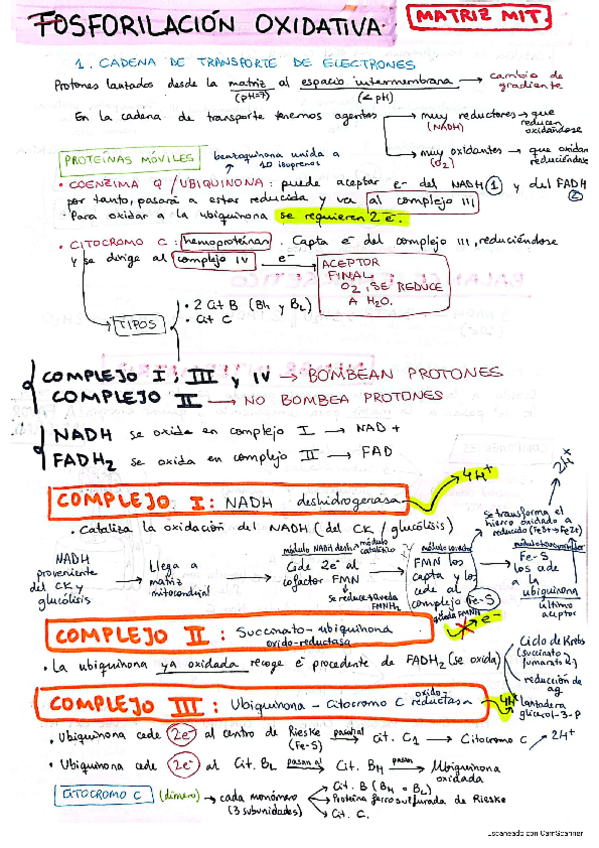 FOSFORILACIÓN OXIDATIVA.
MATRIZ MIT.
1. CADENA DE TRANSPORTE DE ELECTRONES
Protones lanzados desde la matriz al espacio intermembrana → cambio de gradiente
(pH=7) (< pH)
En la cadena de transporte tenemos agentes
muy reductores → que reducen oxidándose
(NADH)
muy oxidantes → que oxidan reduciéndose
(O2)
PROTEÍNAS MÓVILES
benzoquinona unida a
10 isoprenos
• COENZIMA Q / UBIQUINONA: puede aceptar e- del NADH 1 y del FADH 2
por tanto, pasará a estar reducida y va al complejo III
· Para oxidar a la ubiquinona se requieren 2 e-.
• CITOCROMO C: hemoproteínas. Capta e- del complejo III, reduciéndose
y se dirige al complejo IV e-
ACEPTOR
FINAL
O2, SE REDUCE
A H2O.
TIPOS
• 2 Cit B (BH y BL)
• Cit C
COMPLEJO I, III y IV → BOMBEAN PROTONES
COMPLEJO II → NO BOMBEA PROTONES
NADH se oxida en complejo I → NAD+
FADH2 se oxida en complejo II → FAD
COMPLEJO I: NADH deshidrogenasa
4H+
2H+
• Cataliza la oxidación del NADH (del CK / glucólisis)
se transforma el
hierro oxidado a
reducido (Fe3+→Fe2+)
NADH
proveniente
del CK y
glucólisis
Llega a
matriz
mitocondrial
módulo NADH desh.
módulo catalítico
Cede 2e- al
cofactor FMN
se reduce
FMNH2
FMN los
capta y los
cede al
complejo Fe-S
Fe-S
los cede
a la
ubiquinona
último
aceptor
COMPLEJO II: Succinato-ubiquinona
óxido-reductasa
e-
• La ubiquinona ya oxidada recoge e- procedente de FADH2 (se oxida)
Ciclo de Krebs
(succinato
fumarato)
reducción de
ag
lanzadera
glicerol-3-P
COMPLEJO III: Ubiquinona - Citocromo C óxido-reductasa
4H+
• Ubiquinona cede 2e- al centro de Rieske pasan al Cit. C1 → Citocromo C 2H+
(Fe-S)
• Ubiquinona cede 2e- al Cit. BL pasan al Cit. BH pasan Ubiquinona
oxidada
CITOCROMO C (dímero) → cada monómero
(3 subunidades)
Cit. B (BH o BL)
Proteína ferrosulfurada de Rieske
Cit. C.
Escaneado con CamScanner